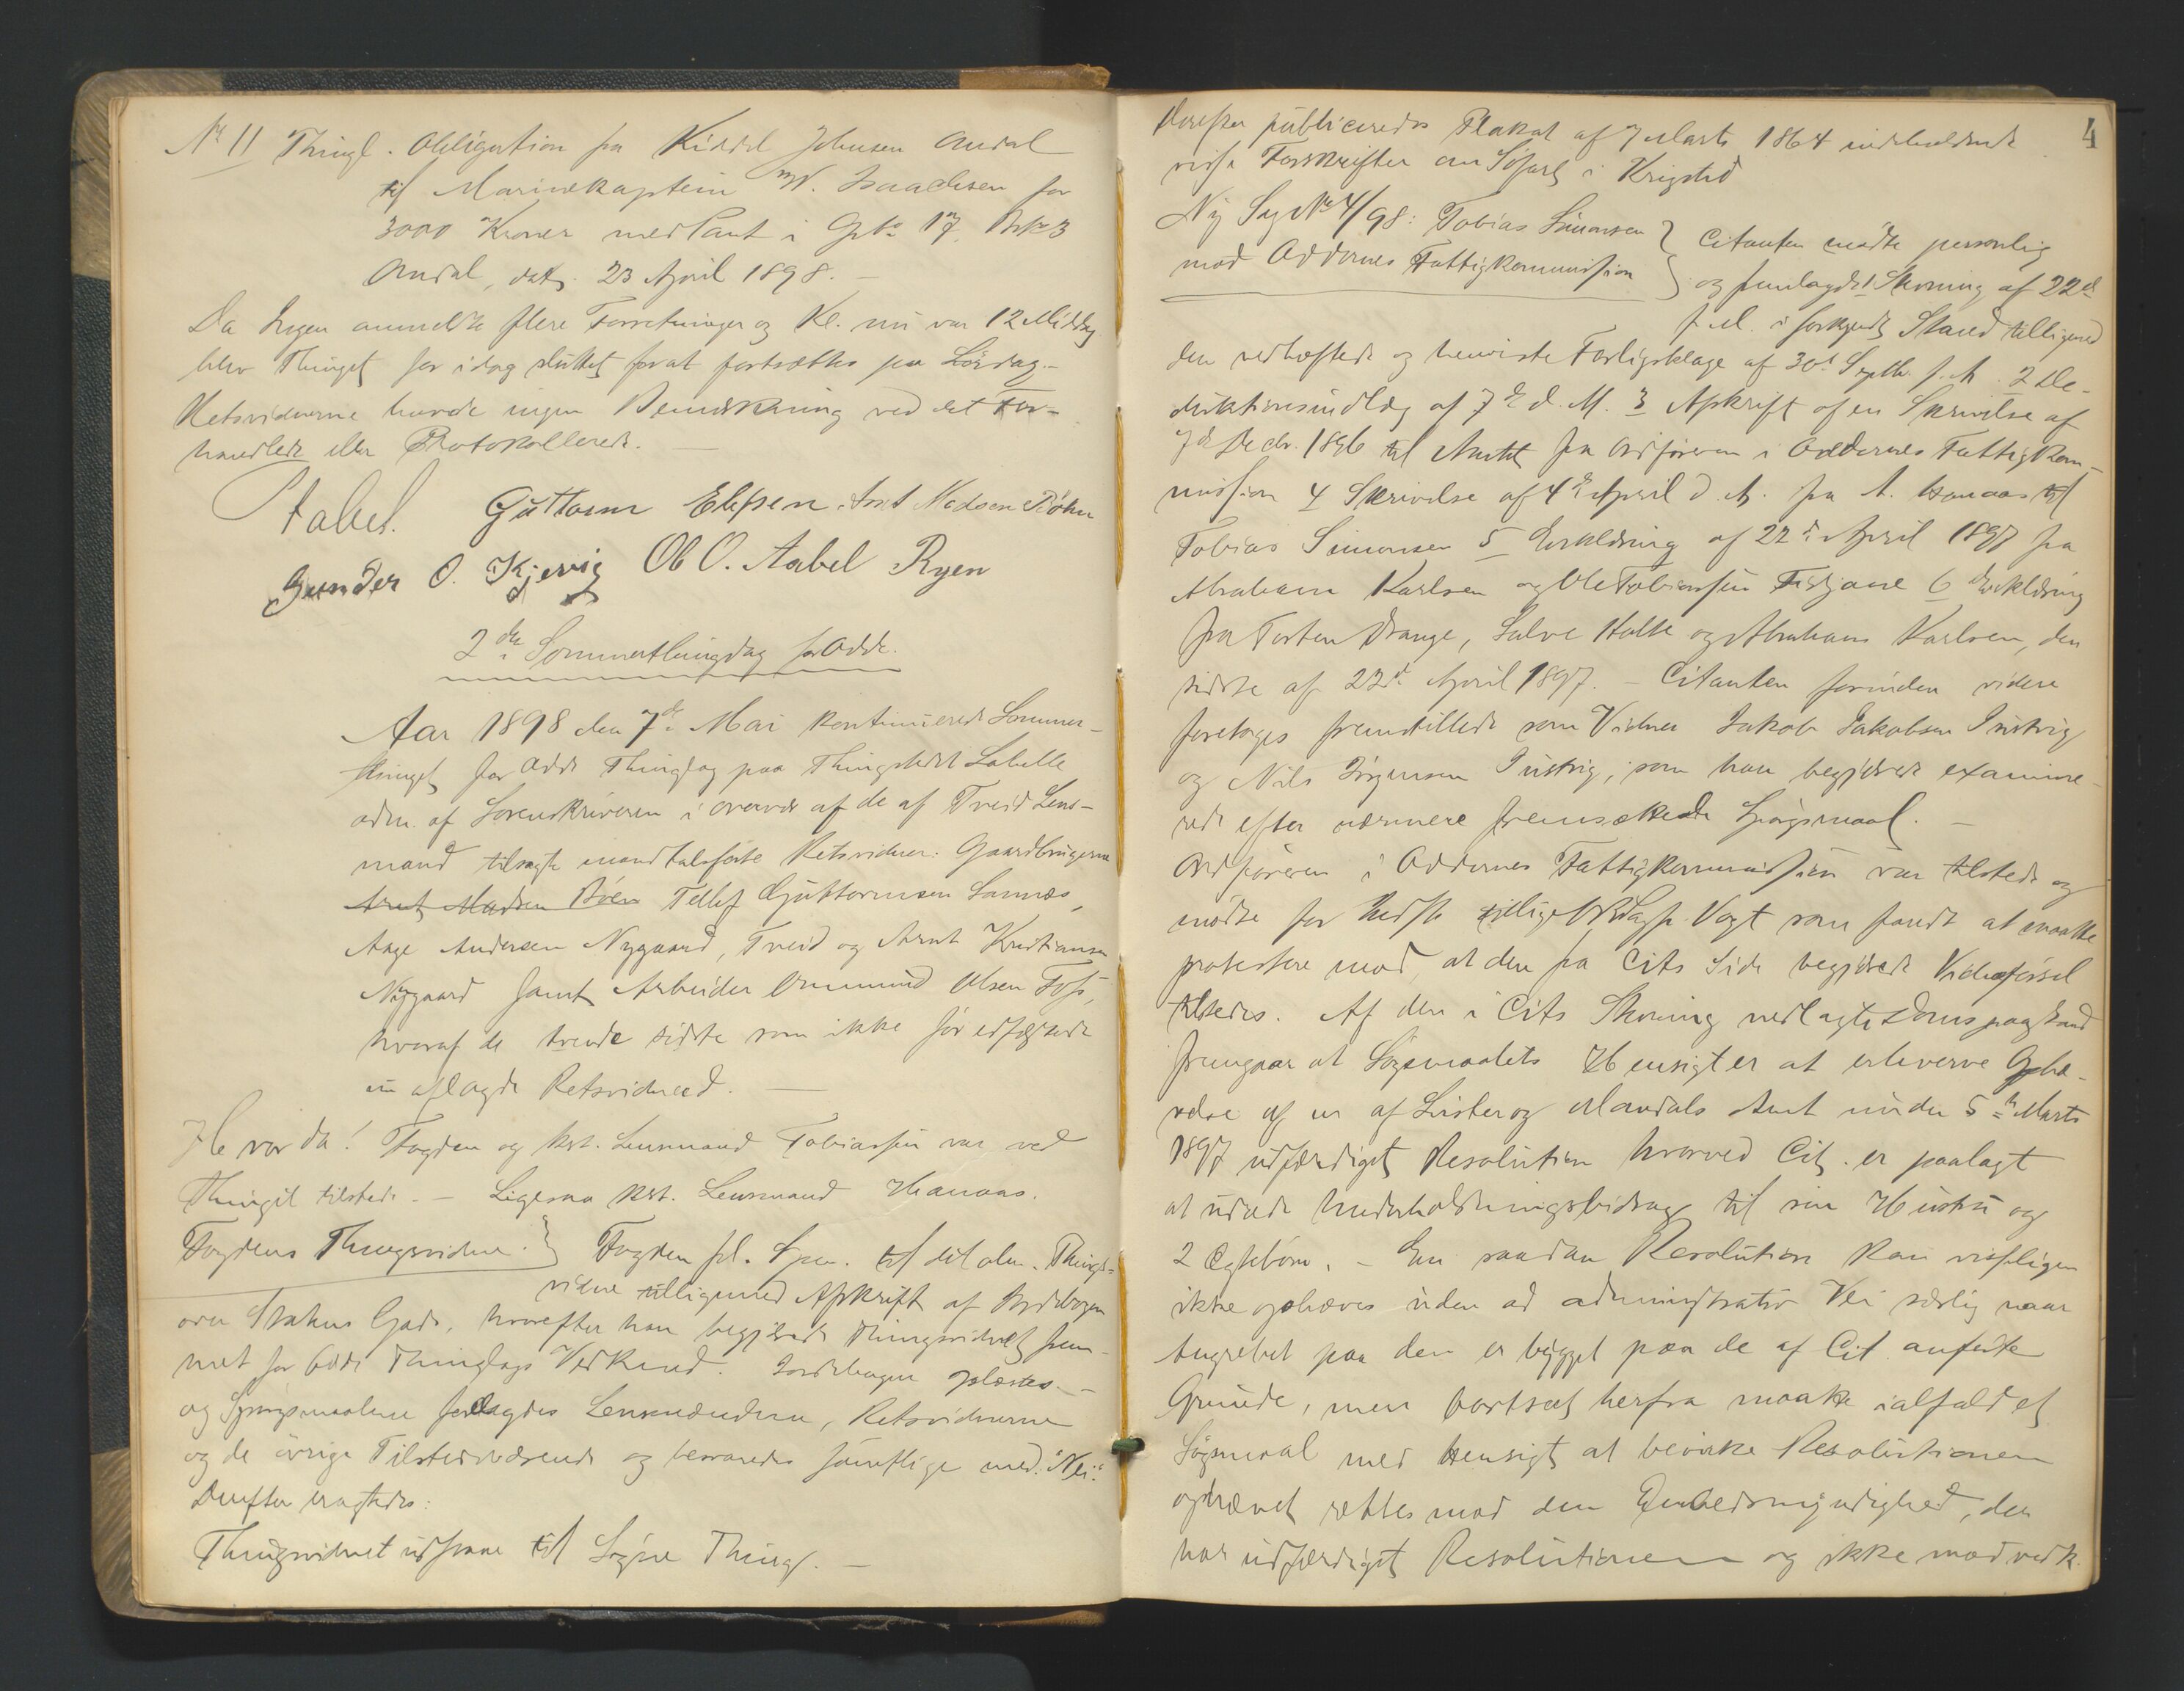 No 11 Thingl. Obligation fra Kittel Johnsen Andal
til Marinekaptein W. Isaachsen for
3000 Kroner med Pant i Gno 17, Bno 3
Andal, dat. 23 April 1898. –
Da Ingen anmeldte flere Forretninger og Kl. nu var 12 Middag
blev Thinget for idag sluttet for at fortsættes paa Lördag. –
Retsvidnerne havde ingen Bemærkning ved det For-
handlede eller Protokollerede. –
Stabel. Guttorm Ellefsen Arnt Madsen Böhn
Gunder O. Kjevig Ob O. Aabel Ryen
2den Sommerthingdag for Odde.
Aar 1898 den 7de Mai kontinuerede Sommer-
thinget for Odde Thinglag paa Thingstedet Labelle
adm. af Sorenskriveren i overvær af de af Tveid Lens-
mand tilsagte mandtalsförte Retsvidner: Gaardbrugerne
Arnt Madsen Böen Tellef Guttormsen Sannæs,
Aage Andersen Nygaard, Tveid og Arnt Kristiansen
Nygaard samt Arbeider Ommund Olsen Foss,
hvoraf de trende sidste som ikke för edfæstede
nu aflagde Retsvidneed. –
Hvor da! Fogden og kst. Lensmand Tobiassen var ved
Thinget tilstede. – Ligesaa kst. Lensmand Hanaas.
Fogdens Thingsvidne. } Fogden frl. Spm. til det alm. Things-
vidne tilligemed Afskrift af Jordebogen
over Statens Gods, hvorefter han begjærede Thingsvidnet frem-
met for Odde Thinglags Vedkmd. Jordebogen oplæstes –
og Spörgsmaalene forelagdes Lensmændene, Retsvidnerne
og de övrige Tilstedeværende og besvaredes samtlige med: "Nei".
Derefter eragtedes:
Thingsvidnet udstaar til Søgne Thing. –
4
Derefter publiceredes Plakat af 7 Marts 1864 indeholdende
visse Forskrifter om Söfart i Krigstid
Ny Sag No 4/98: Tobias Simonsen } Citanten mödte personlig
mod Oddernes Fattigkommission } og fremlagde 1 Stevning af 22de
f. M. i forkyndt Stand tilligemed
den vedhæftede og henviste Forligsklage af 30te Septb. f. A. 2 De-
duktionsindlæg af 7de d. M. 3 Afskrift af en Skrivelse af
7de Decbr. 1896 til Amtet fra Ordföreren i Oddernes Fattigkom-
mission 4 Skrivelse af 4de April d. A. fra A. Hanaas til
Tobias Simonsen 5 Erklæring af 22de April 1897 fra
Abraham Karlsen og Ole Tobiassen 6 Erklæring
fra Torsten Drange, Salve Holte og Abraham Karlsen, den
sidste af 22de April 1897. – Citanten forinden videre
foretoges fremstillede som Vidner Jakob Jakobsen Justvig
og Nils Jörgensen Justvig, som han begjærede examine-
rede efter nærmere fremsættende Spörgsmaal. –
Ordföreren i Oddernes Fattigkommission var tilstede og
mödte for Indst. tillige Vogt som fandt at maatte
protestere mod, at den fra Cits Side begjærede Vidneförsel
tilstedes. Af den i Cits Stevning nedlagte Domspaastand
fremgaar at Sögsmaalets Hensigt er at erhverve Ophæ-
velse af en af Lister og Mandals Amt under 5te Marts
1897 udfærdiget Resolution hvorved Cit. er paalagt
at udrede Underholdningsbidrag til sin Hustru og
2 Ægtebörn. – En saadan Resolution kan visseligen
ikke ophæves uden ad administrativ Vei særlig naar
Angrebet paa den er bygget paa de af Cit. anförte
Grunde, men bortseet herfra maatte ialfald et
Sögsmaal med Hensigt at bevirke Resolutionen
ophævet rettes mod den Embedsmyndighed, der
har udfærdiget Resolutionen og ikke mod vedk.